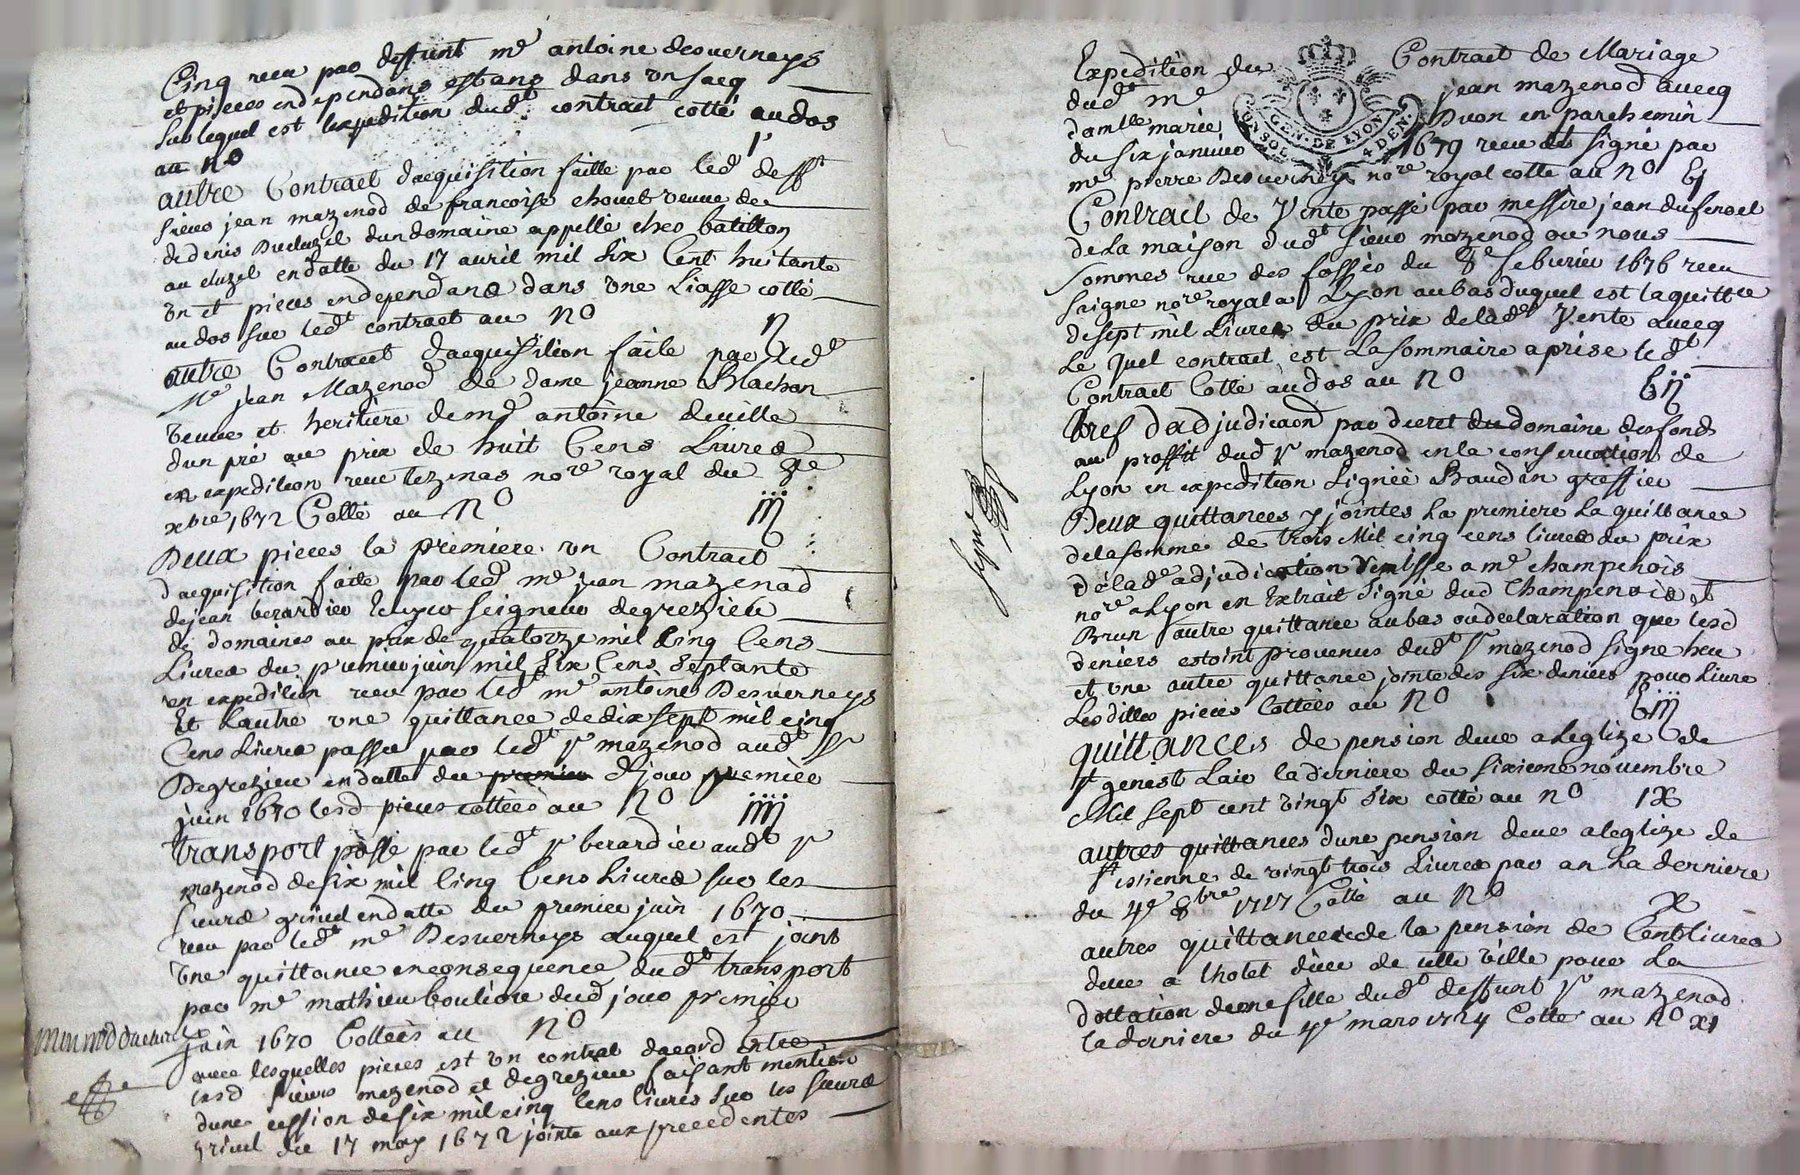 Cinq receu par deffunt me antoine desverneys
et pieces independans estans dans un sacq
sur lequel est lexpedition dudt contract cotté au dos
au no 1
autre Contract dacquisition faitte par led defft
sieur jean mazenod de francoise chouet veuve de
de denis Ducluzel dun domaine appellé ches batillon
au cluzel en datte du 17 auril mil six Cent huitante
un et pieces independans dans une Liasse cotté
au dos sur ledt contract au no ij
autre Contract dacquisition faite par ledt
Me jean Mazenod de dame jeanne Bachon
veuve et heritiere de me antoine deville
dun pre au prix de huit Cens Livres
en expedition receu tezenas nore royal du
xbre 1672 Cotté au No iij
Deux pieces la premiere un Contract
dacquisition faite par led me jean mazenod
de jean berardier seigneur de grezieu
de domaines au prix de quatorze mil Cinq Cens
Livres du premier juin mil six Cens septante
en expedition receu par ledt me antoine Desverneys
Et Lautre une quittance de dix sept mil cinq
Cens Livres passée par ledt sr mazenod audt sr
Degrezieu en datte du premier djour premier
juin 1670 lesd pieces cottées au No iiij
transport passé par ledt sr berardier audt sr
mazenod de six mil Cinq Cens Livres sur les
sieurs griuel en datte du premier juin 1670
receu par ledt me Desverneys auquel est joint
une quittance en consequence dudt transport
par me mathieu bouliore dud jour premier
juin 1670 Cottées au No
avec lesquelles pieces est un contrat dacord Entre
lesd sieurs mazenod et degrezieu faisant mention
dune cession de six mil cinq Cens livres sur les sieurs
griuel du 17 may 1672 jointe aux precedentes
Expedition du Contract de Mariage
dudt me jean mazenod avecq
damlle marie Duon en parchemin
du six januier 1679 receu et signé par
me pierre Desverneys nore royal cotté au No vj
GEN. DE LYON
UN SOL 4 DEN.
Contract de Vente passé par messire jean dufenoel
de La maison dudt sieur mazenod ou nous
sommes rue des fossés du 8e feburier 1676 receu
Saigne nore royal a Lyon au bas duquel est la quittce
de sept mil Livres du prix de lade Vente avecq
Le quel contract est La sommaire aprise ledt
Contract Cotté au dos au No vij
Bref dadjudicaon par decret du domaine desfonds
au proffit dud sr mazenod en la conservation de
Lyon en expedition signée Baudin greffier
Deux quittances y jointes La premiere La quittance
de la somme de trois Mil cinq cens livres du prix
de lade adjudication remisse a me champenois
nore a Lyon en Extrait signé dud Champenois et
Brun autre quittance au bas ou declaration que lesd
deniers estoint provenus dudt sr mazenod signé heu
et une autre quittance jointe des six deniers pour Livre
Lesdittes pieces Cottées au No viij
quittances de pension deue a Leglize de
st genest Lair la derniere du sixieme novembre
Mil sept cent vingt six cotté au no ix
autres quittances dune pension deue a leglize de
st estienne de vingt trois Livres par an La derniere
du 4e 8bre 1727 Cotté au No x
autres quittances de la pension de Cent Livres
deue a lhotel dieu de cette Ville pour La
dottation dune fille dudt deffunt sr mazenod
la derniere du 4e mars 1724 Cotté au No xi